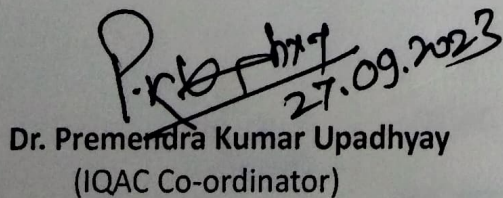 27.09.2023
Dr. Premendra Kumar Upadhyay
(IQAC Co-ordinator)